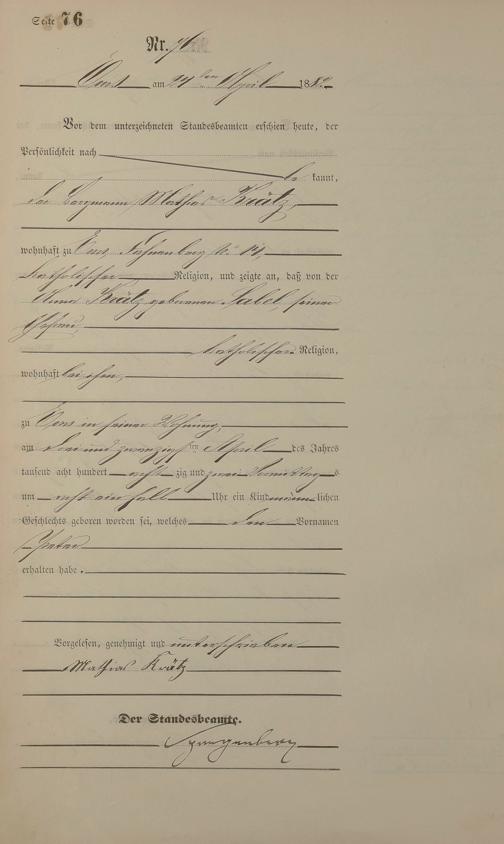 Seite 76
Nr. 76
Ems am 24ten April 1882
Vor dem unterzeichneten Standesbeamten erschien heute, der
Persönlichkeit nach
be kannt,
der Bergmann Mathias Krätz,
wohnhaft zu Ems, No 14,
katholischer Religion, und zeigte an, daß von der
Anna Krätz geborenen Sabel, seiner
Ehefrau,
katholischer Religion,
wohnhaft bei ihm,
zu Ems in seiner Wohnung,
am drei und zwanzigsten April des Jahres
tausend acht hundert acht zig und zwei Vormittags
um acht ein halb Uhr ein Kind männlichen
Geschlechts geboren worden sei, welches den Vornamen
Peter
erhalten habe.
Vorgelesen, genehmigt und unterschrieben
Mathias Krätz
Der Standesbeamte.
Spangenberg